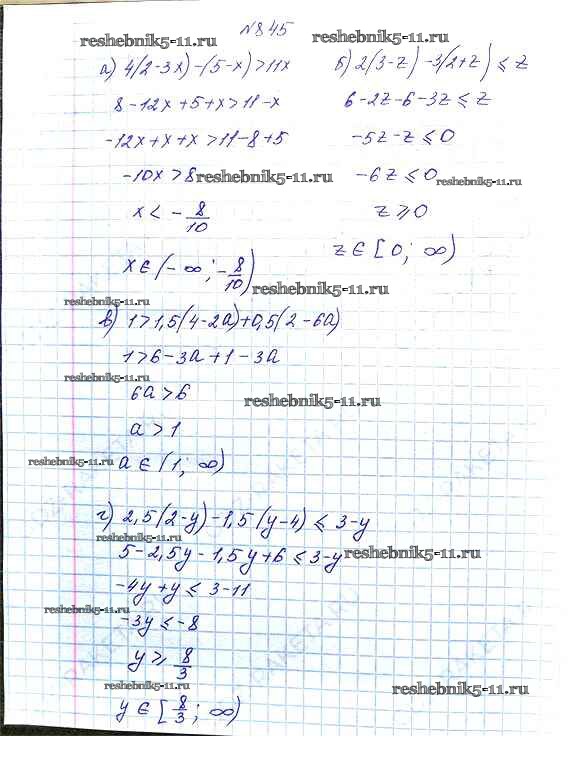 №845
reshebnik5-11.ru reshebnik5-11.ru
а) 4(2-3x)-(5-x)>11x б) 2(3-z)-3(2+z)≤z
8-12x+5+x>11-x 6-2z-6-3z≤z
-12x+x+x>11-8+5 -5z-z≤0
-10x>8 reshebnik5-11.ru -6z≤0 reshebnik5-11.ru
x<-8/10 z≥0
x∈(-∞;-8/10) z∈[0;∞)
reshebnik5-11.ru
reshebnik5-11.ru
в) 1>1,5(4-2a)+0,5(2-6a)
1>6-3a+1-3a
reshebnik5-11.ru
6a>6 reshebnik5-11.ru
a>1
reshebnik5-11.ru a∈(1;∞)
г) 2,5(2-y)-1,5(y-4)≤3-y
reshebnik5-11.ru
5-2,5y-1,5y+6≤3-y reshebnik5-11.ru
-4y+y≤3-11
reshebnik5-11.ru
-3y≤-8
y≥8/3
reshebnik5-11.ru reshebnik5-11.ru
y∈[8/3;∞)